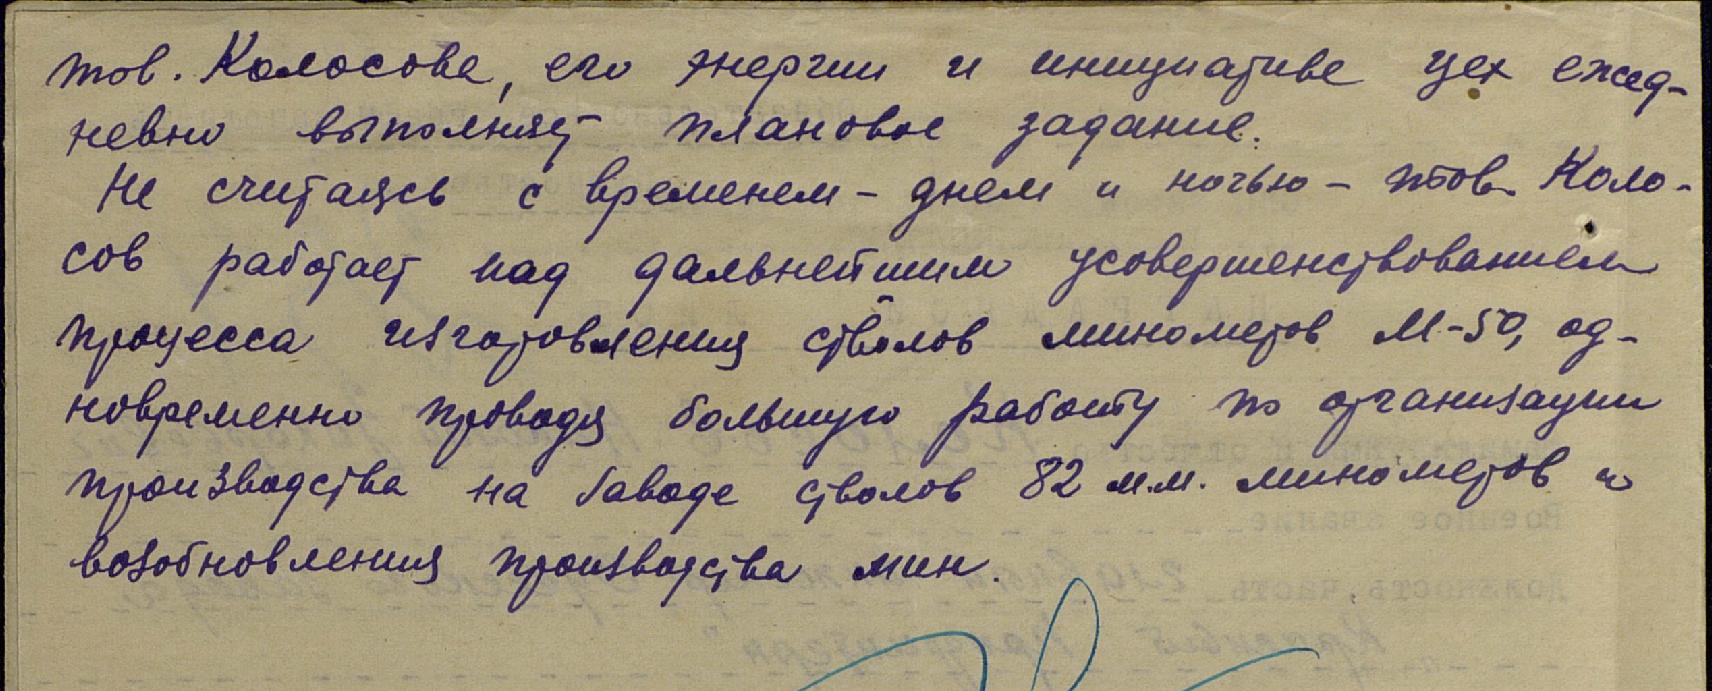 тов. Колосова, его энергии и инициативе цех ежед-
невно выполняет плановое задание.
Не считаясь с временем – днем и ночью – тов. Коло-
сов работает над дальнейшим усовершенствованием
процесса изготовления стволов минометов М-50, од-
новременно проводя большую работу по организации
производства на заводе стволов 82 м.м. минометов и
возобновления производства мин.